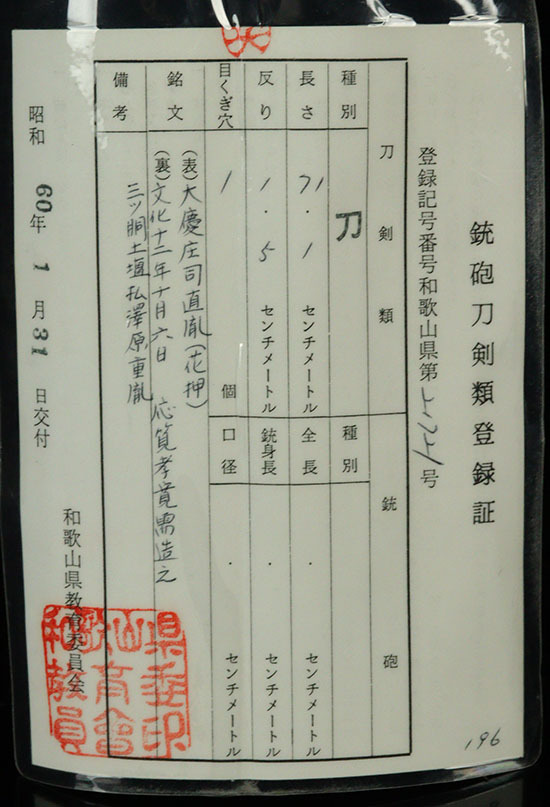 銃砲刀剣類登録証
登録記号番号和歌山県第 号
刀剣類
種別 刀
長さ 71.1 センチメートル
反り 1.5 センチメートル
目くぎ穴 1 個
銃砲
種別
全長 . センチメートル
銃身長 . センチメートル
口径 . センチメートル
銘文
(表)大慶庄司直胤(花押)
(裏)文化十二年十月六日 応筧孝賁需造之
三ツ胴土壇払澤原重胤
備考
昭和60年1月31日交付
和歌山県教育委員会
196